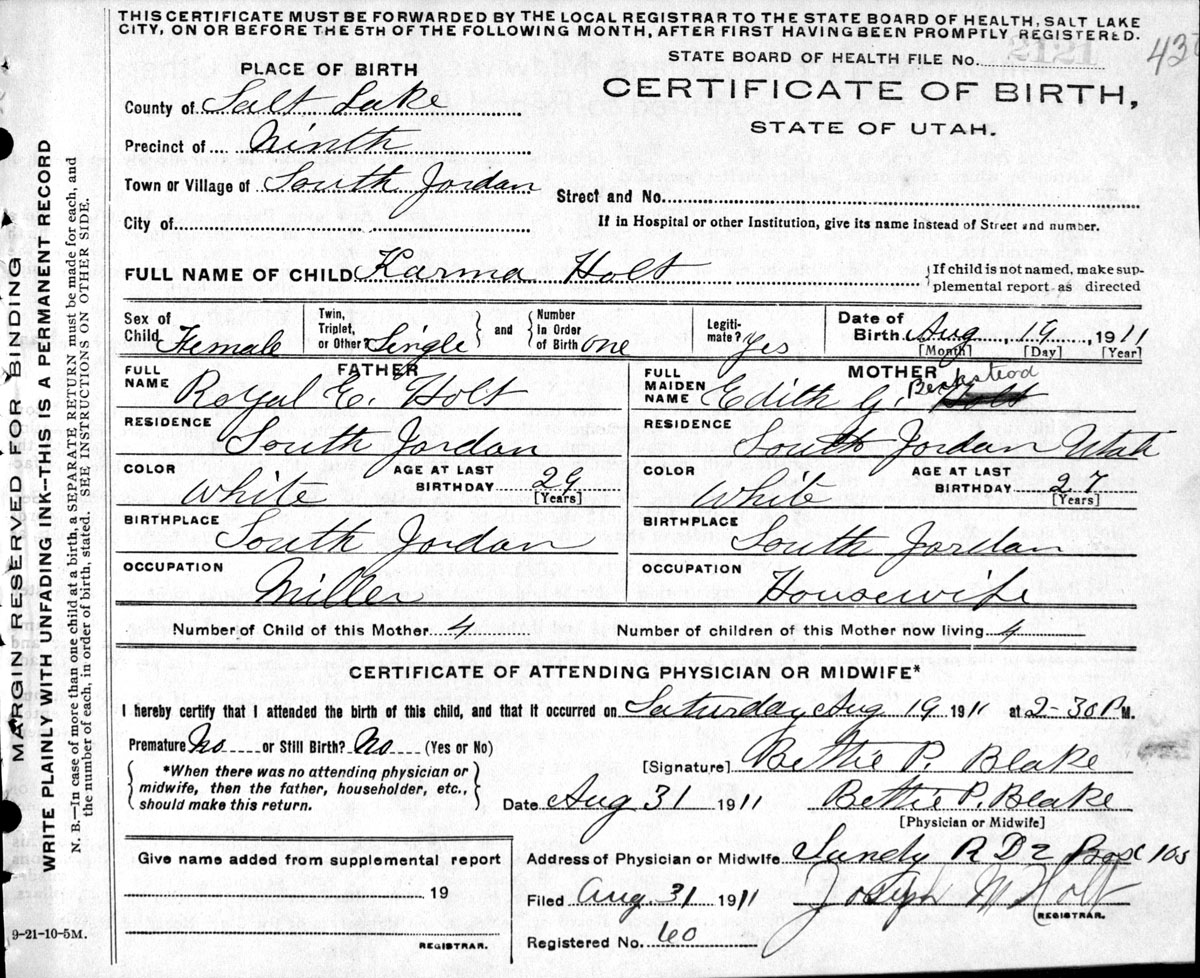 THIS CERTIFICATE MUST BE FORWARDED BY THE LOCAL REGISTRAR TO THE STATE BOARD OF HEALTH, SALT LAKE
CITY, ON OR BEFORE THE 5TH OF THE FOLLOWING MONTH, AFTER FIRST HAVING BEEN PROMPTLY REGISTERED.
437
STATE BOARD OF HEALTH FILE No.
PLACE OF BIRTH
CERTIFICATE OF BIRTH,
STATE OF UTAH.
County of Salt Lake
Precinct of Ninth
Town or Village of South Jordan
Street and No.
City of
If in Hospital or other Institution, give its name instead of Street and number.
FULL NAME OF CHILD Karma Holt
If child is not named, make sup-
plemental report as directed
Sex of Child Female
Twin, Triplet, or Other? Single
and
Number in Order of Birth one
Legiti-mate? Yes
Date of Birth Aug, 19, 1911
[Month] [Day] [Year]
FATHER
MOTHER
FULL NAME Royal E. Holt
FULL MAIDEN NAME Edith G. Beckstead
RESIDENCE South Jordan
RESIDENCE South Jordan Utah
COLOR White AGE AT LAST BIRTHDAY 29 [Years]
COLOR White AGE AT LAST BIRTHDAY 27 [Years]
BIRTHPLACE South Jordan
BIRTHPLACE South Jordan
OCCUPATION Miller
OCCUPATION Housewife
Number of Child of this Mother 4
Number of children of this Mother now living 4
CERTIFICATE OF ATTENDING PHYSICIAN OR MIDWIFE*
I hereby certify that I attended the birth of this child, and that it occurred on Saturday Aug 19 1911 at 2-30 P M.
Premature No or Still Birth? No (Yes or No)
*When there was no attending physician or
midwife, then the father, householder, etc.,
should make this return.
[Signature] Bettie P. Blake
Date Aug 31 1911 Bettie P. Blake
[Physician or Midwife]
Give name added from supplemental report
19
REGISTRAR.
Address of Physician or Midwife Sandy R D 2 Box 103
Filed Aug 31 1911 Joseph M Holt
REGISTRAR.
Registered No. 60
9-21-10-5M.
MARGIN RESERVED FOR BINDING
WRITE PLAINLY WITH UNFADING INK--THIS IS A PERMANENT RECORD
N. B.—In case of more than one child at a birth, a SEPARATE RETURN must be made for each, and
the number of each, in order of birth, stated. SEE INSTRUCTIONS ON OTHER SIDE.